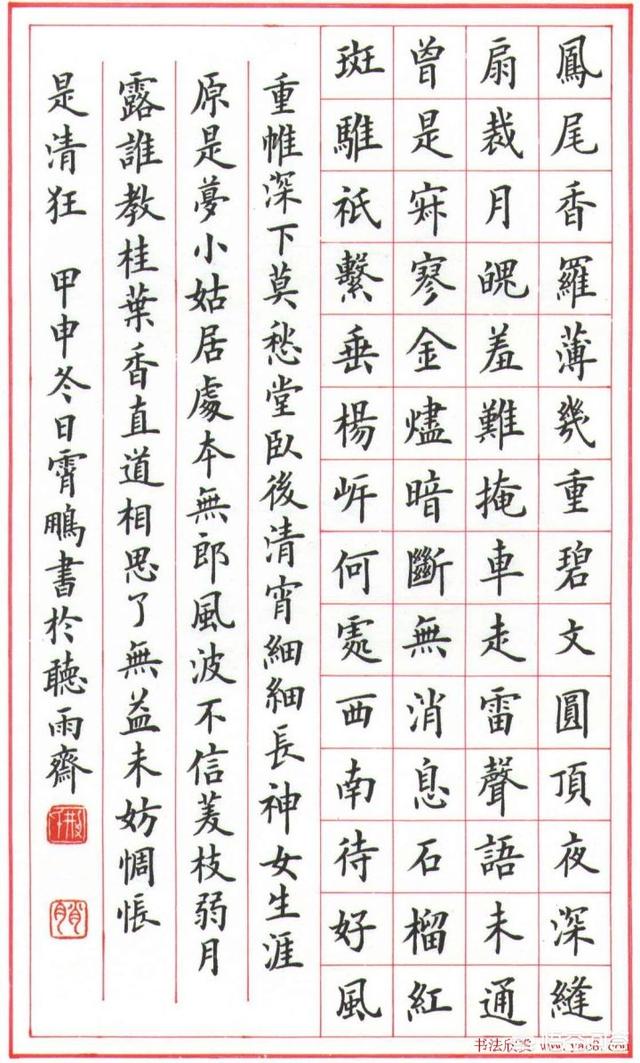 鳳尾香羅薄幾重碧文圓頂夜深縫
扇裁月魄羞難掩車走雷聲語未通
曾是寂寥金燼暗斷無消息石榴紅
斑騅祇繫垂楊岍何處西南待好風
重帷深下莫愁堂臥後清宵細細長神女生涯
原是夢小姑居處本無郎風波不信菱枝弱月
露誰教桂葉香直道相思了無益未妨惆悵
是清狂 甲申冬日霄鵬書於聽雨齋
书法欣赏 www.yac8.com